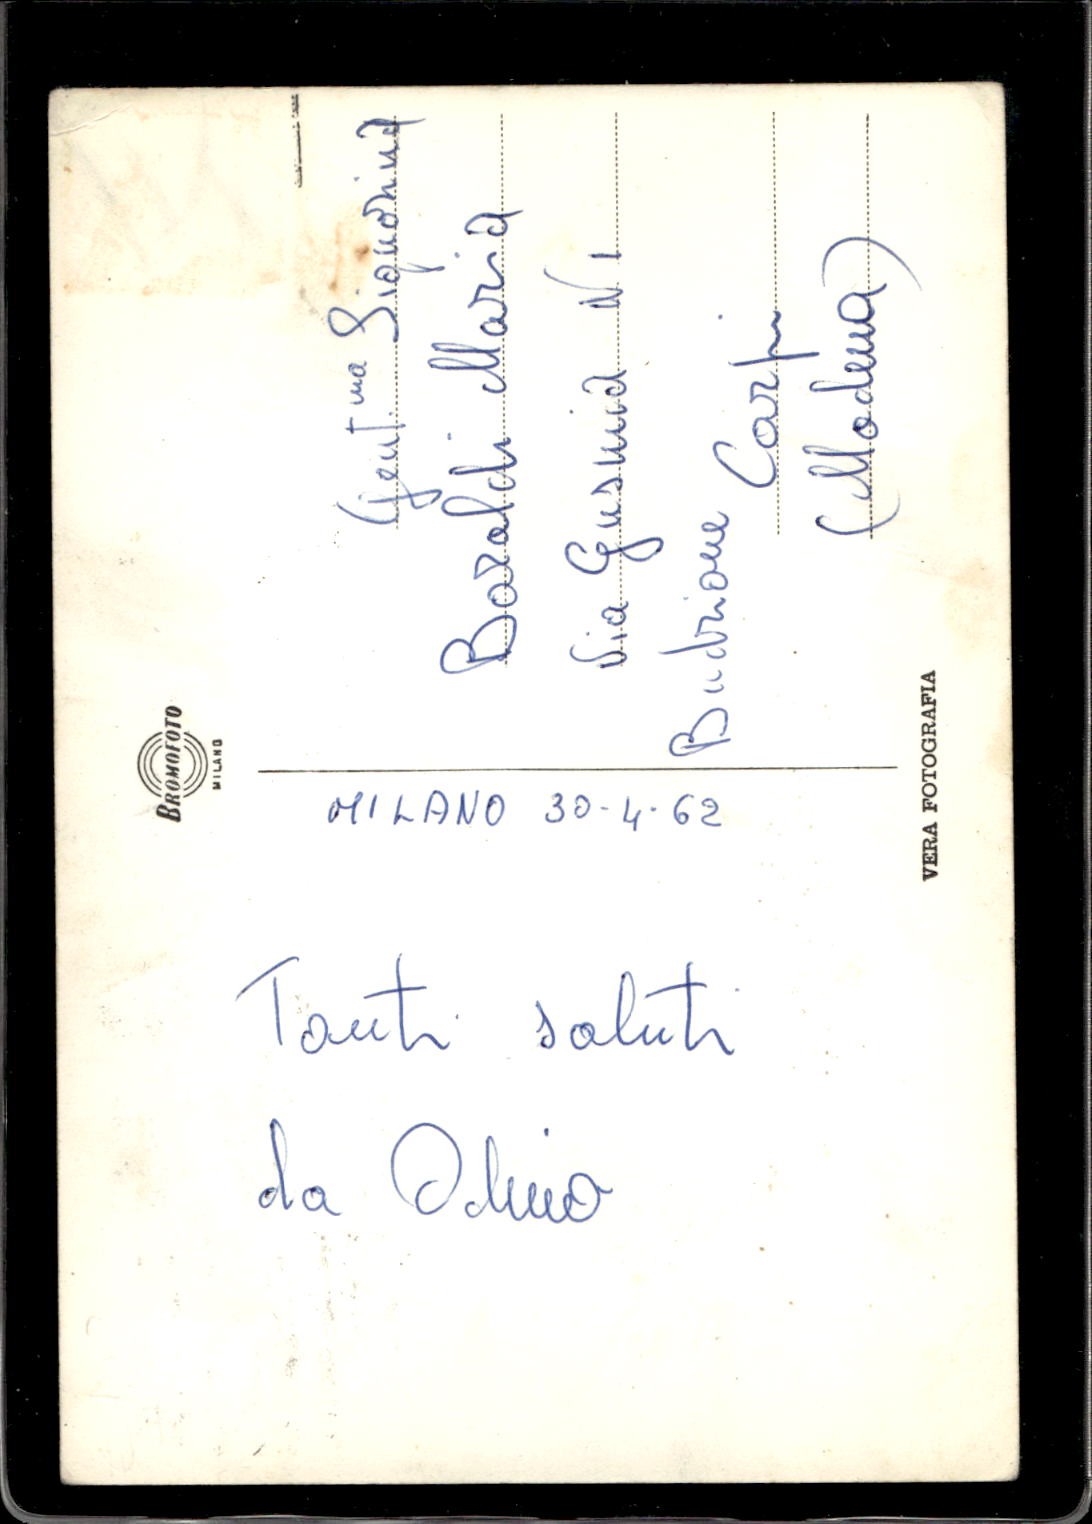 MILANO 30-4-62
Tanti saluti
da Odino
Gent.ma Signorina
Baraldi Maria
Via Gusmea N 1
Budrione Carpi
(Modena)
BROMOFOTO
MILANO
VERA FOTOGRAFIA